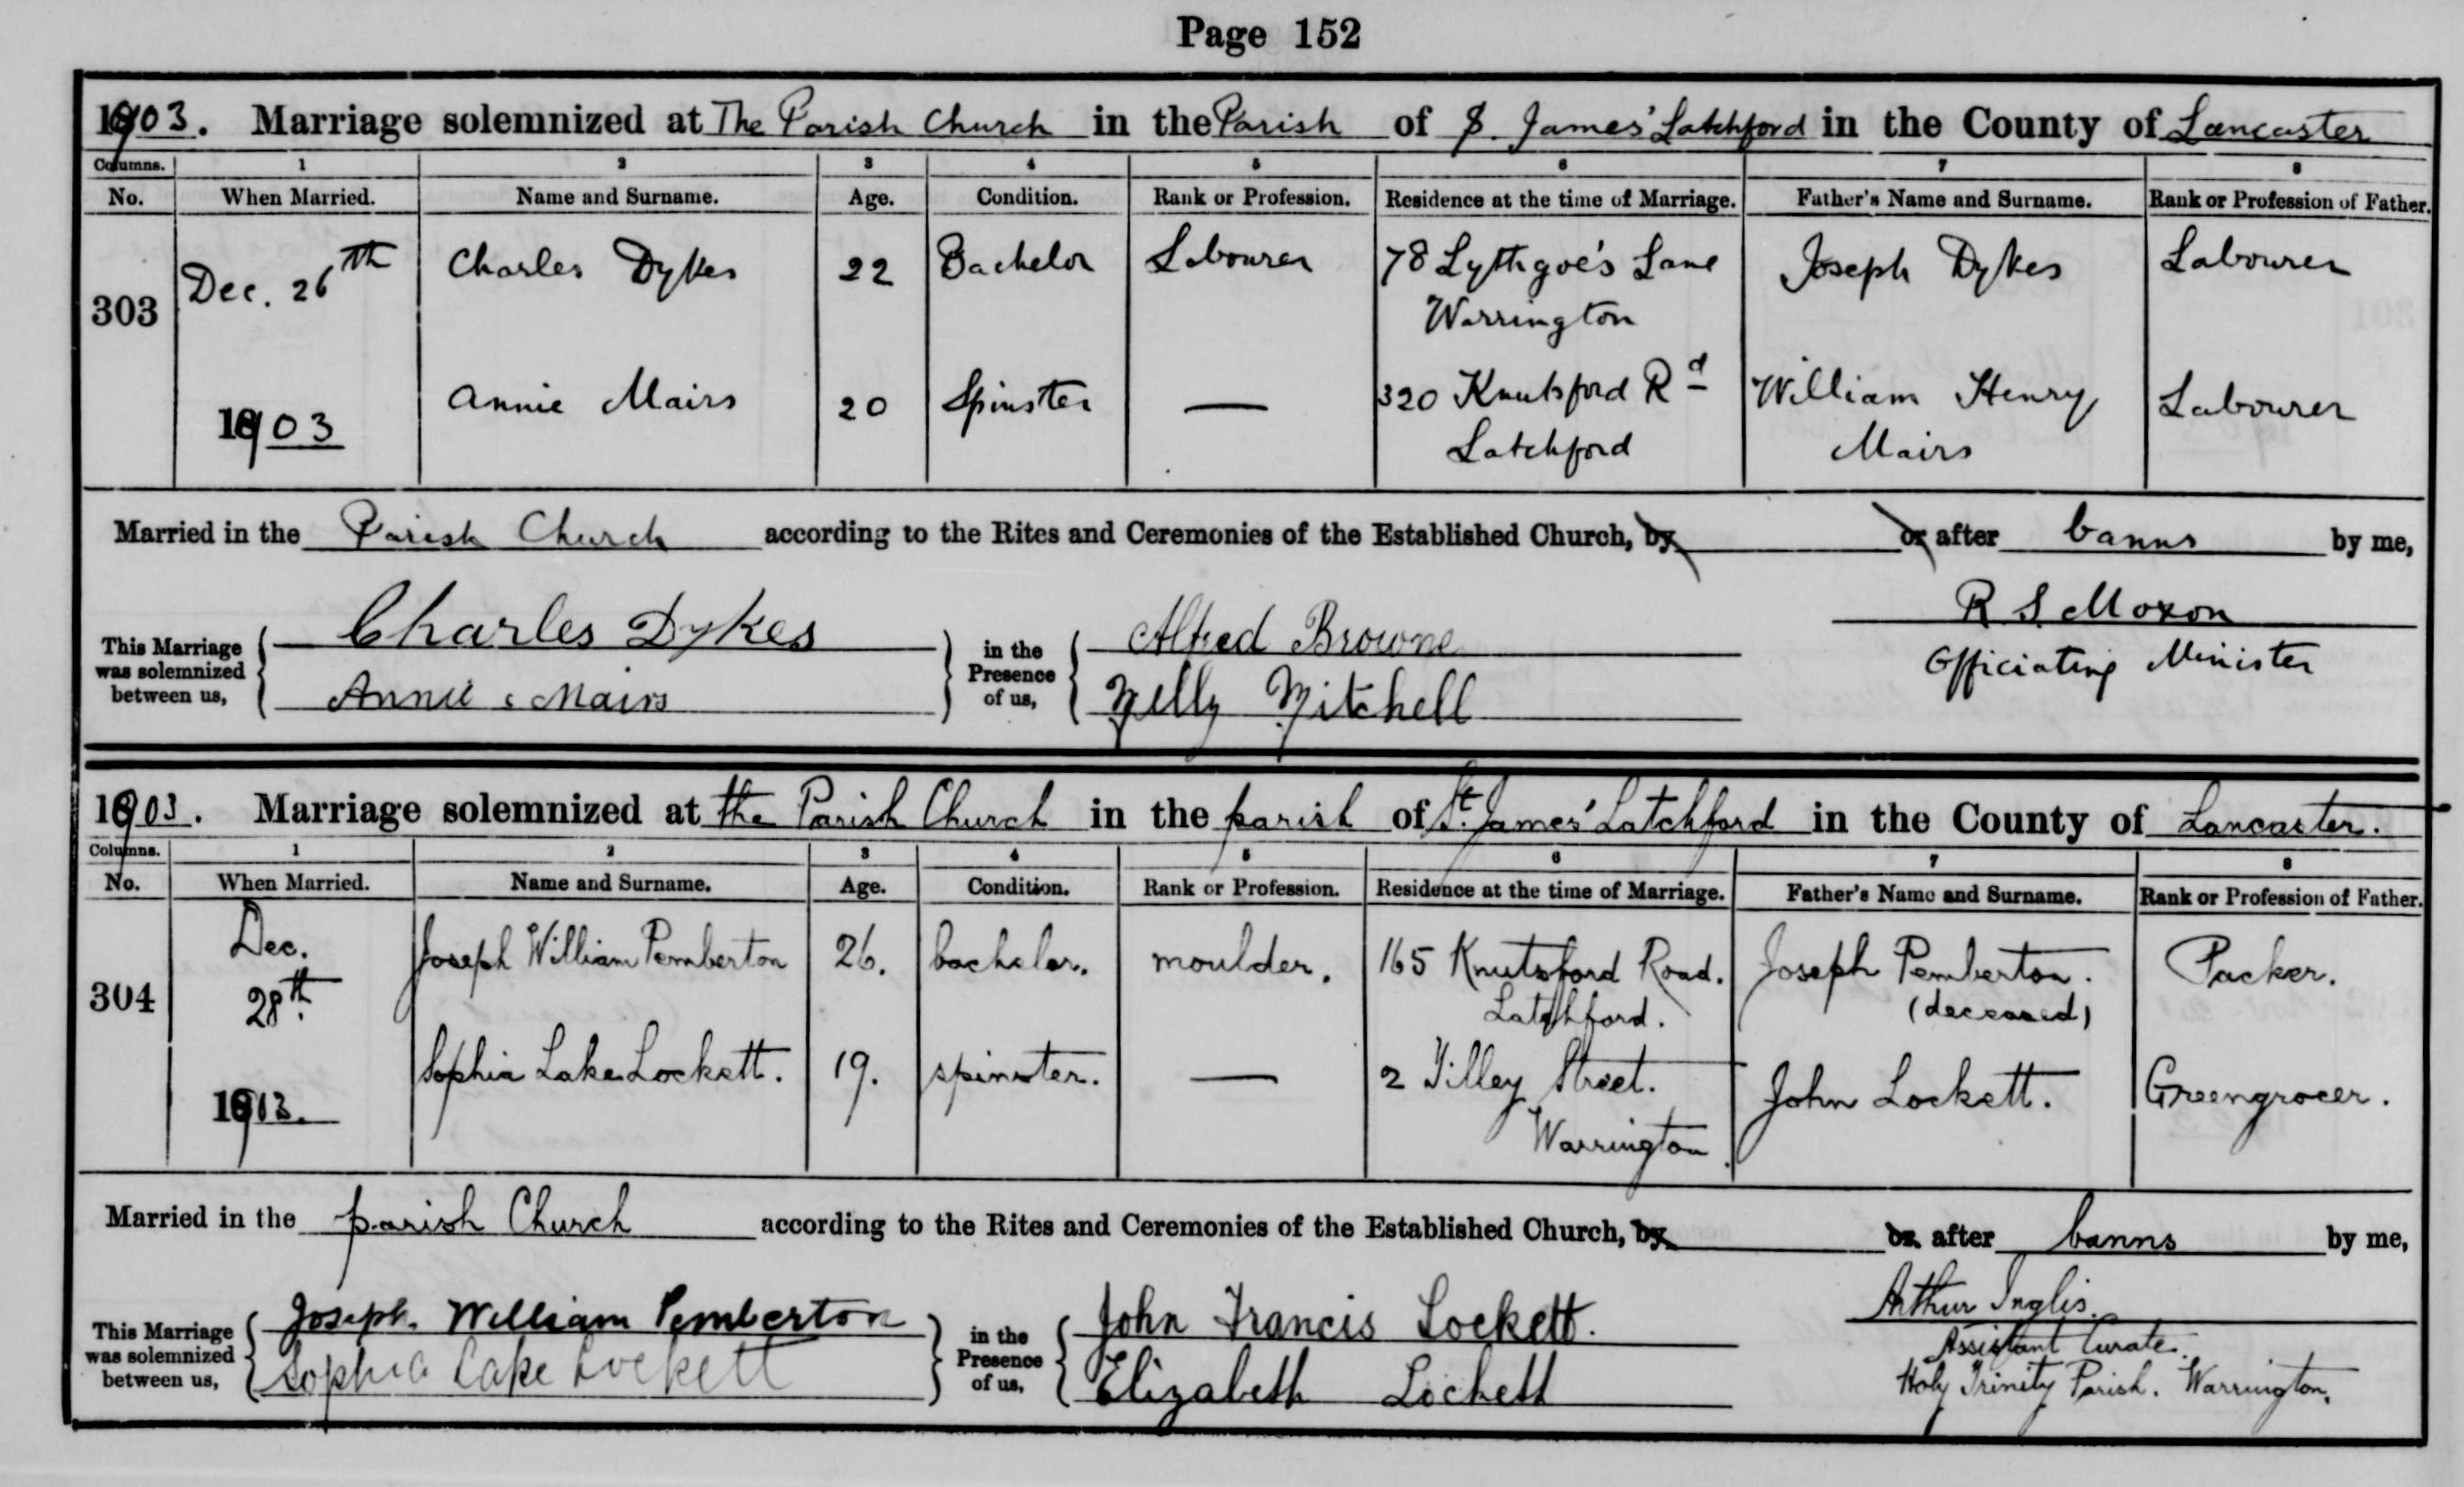 Page 152
1903. Marriage solemnized at The Parish Church in the Parish of S. James' Latchford in the County of Lancaster
Columns. 1 2 3 4 5 6 7 8
No. When Married. Name and Surname. Age. Condition. Rank or Profession. Residence at the time of Marriage. Father's Name and Surname. Rank or Profession of Father.
303 Dec. 26th Charles Dykes 22 Bachelor Labourer 78 Lythgoe's Lane Joseph Dykes Labourer
Warrington
1903 Annie Mairs 20 Spinster — 320 Knutsford Rd William Henry Labourer
Latchford Mairs
Married in the Parish Church according to the Rites and Ceremonies of the Established Church, by or after banns by me,
This Marriage was solemnized between us, Charles Dykes in the Presence of us, Alfred Browne R S. Moxon
Annie Mairs Nelly Mitchell Officiating Minister
1903. Marriage solemnized at the Parish Church in the parish of St. James' Latchford in the County of Lancaster.
Columns. 1 2 3 4 5 6 7 8
No. When Married. Name and Surname. Age. Condition. Rank or Profession. Residence at the time of Marriage. Father's Name and Surname. Rank or Profession of Father.
304 Dec. 28th. Joseph William Pemberton 26. bachelor. moulder. 165 Knutsford Road. Joseph Pemberton. Packer.
Latchford. (deceased)
1903. Sophia Lake Lockett. 19. spinster. — 2 Tilley Street. John Lockett. Greengrocer.
Warrington
Married in the parish Church according to the Rites and Ceremonies of the Established Church, by or after banns by me,
This Marriage was solemnized between us, Joseph William Pemberton in the Presence of us, John Francis Lockett. Arthur Inglis.
Sophia Lake Lockett Elizabeth Lockett Assistant Curate.
Holy Trinity Parish. Warrington.